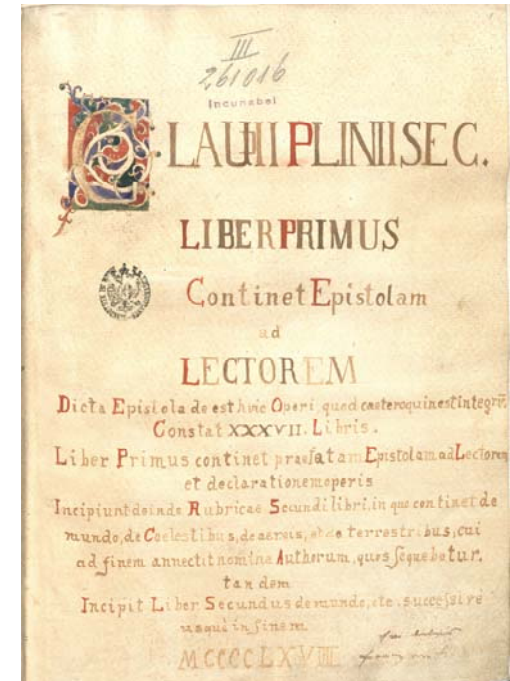 III
261016
Incunabel
CLAUDII PLINII SEC.
LIBER PRIMUS
Continet Epistolam
ad
LECTOREM
Dicta Epistola de est huic Operi, quod caeteroquin est integrũ.
Constat XXXVII. Libris.
Liber Primus continet praefatam Epistolam ad Lectorem
et declarationem operis
Incipiunt deinde Rubricae Secundi libri. in quo continet de
mundo, de Coelestibus, de aereis, et de terrestribus, cui
ad finem annectit nomina Authorum, quos sequebatur.
tandem
Incipit Liber Secundus de mundo, etc. successive
usque in finem
MCCCCLXVIII